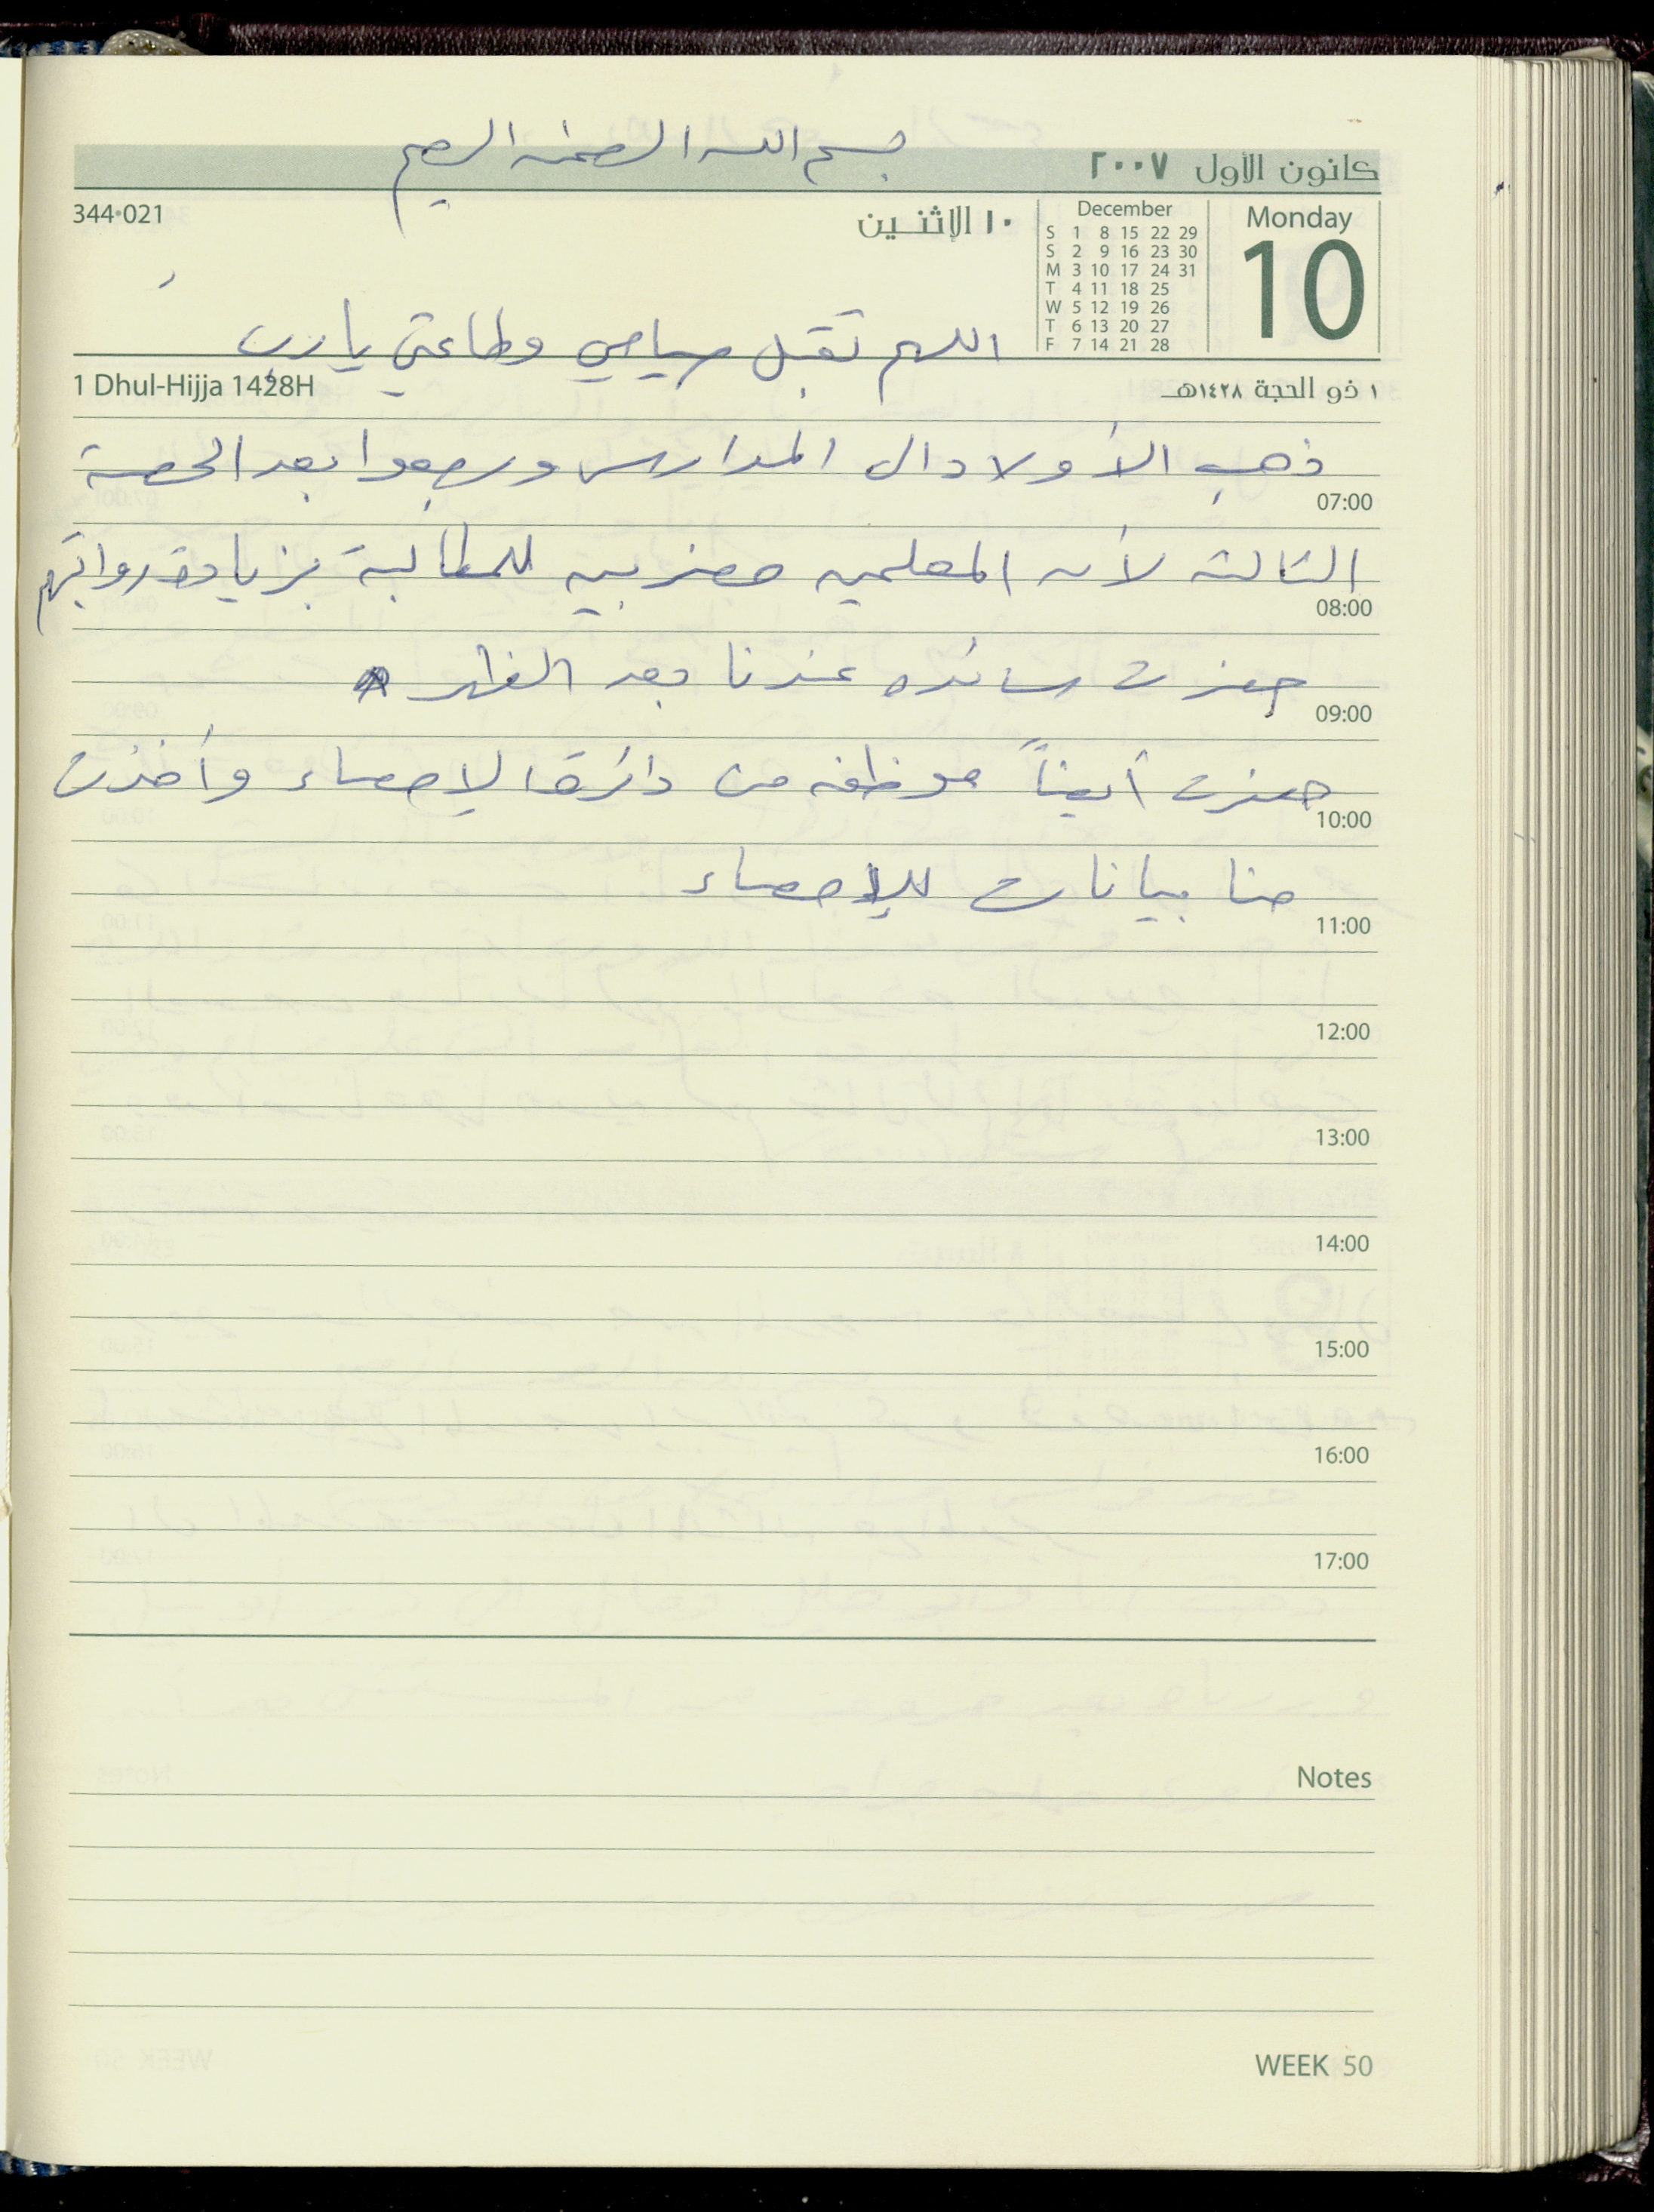 بسم الله الرحمن الرحيم
كانون الأول ٢٠٠٧
Monday
10
December
S 1 8 15 22 29
S 2 9 16 23 30
M 3 10 17 24 31
T 4 11 18 25
W 5 12 19 26
T 6 13 20 27
F 7 14 21 28
١٠ الإثنين
344-021
اللهم تقبل صيامي وطاعتي يا رب
١ ذو الحجة ١٤٢٨هـ
1 Dhul-Hijja 1428H
ذهب الأولاد الى المدارس ورجعوا بعد الحصة
07:00
الثالثة لأن المعلمين مضربين للمطالبة بزيادة رواتبهم
08:00
حضرت سائده عندنا بعد الظهر
09:00
حضرت أيضاً موظفه من دائرة الإحصاء وأخذت
10:00
منا بيانات للإحصاء
11:00
12:00
13:00
14:00
15:00
16:00
17:00
Notes
WEEK 50